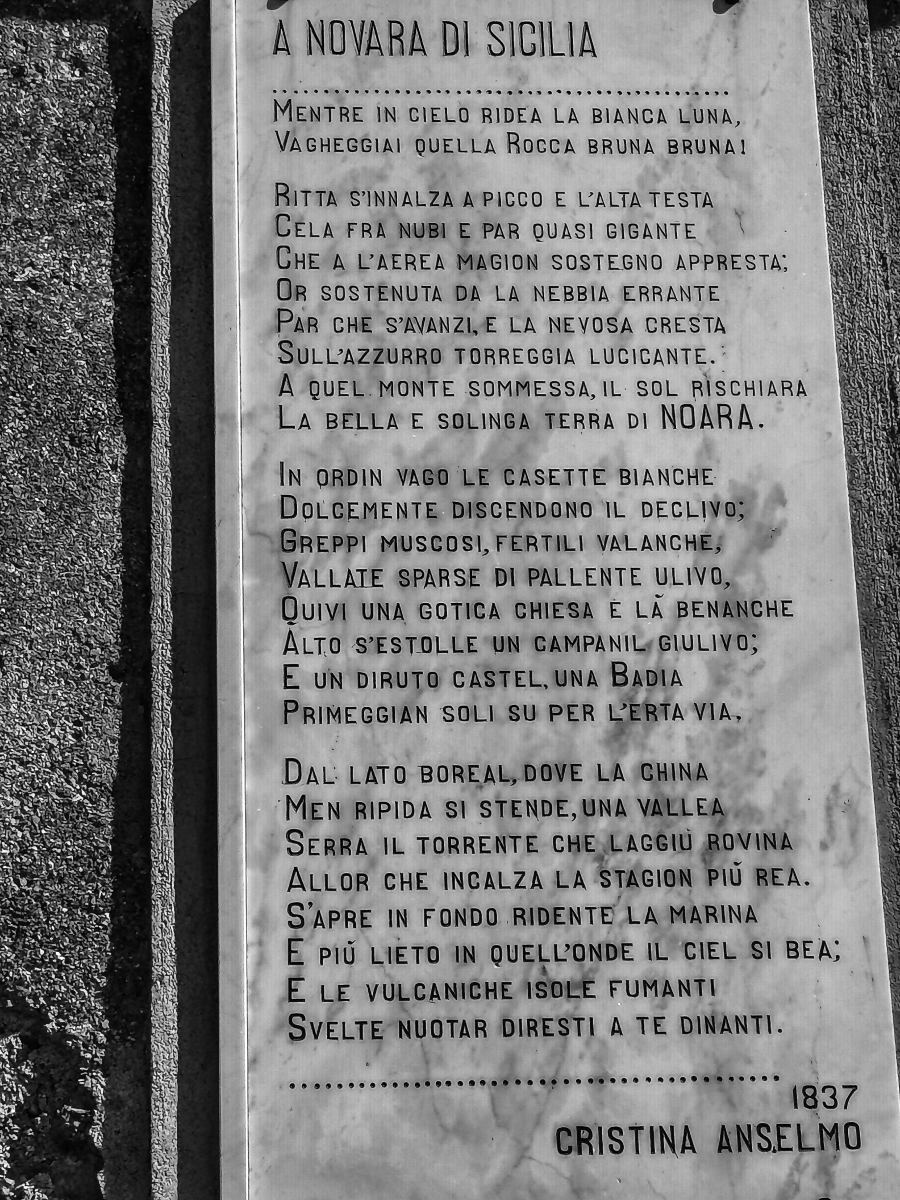 A NOVARA DI SICILIA
MENTRE IN CIELO RIDEA LA BIANCA LUNA,
VAGHEGGIAI QUELLA ROCCA BRUNA BRUNA!
RITTA S'INNALZA A PICCO E L'ALTA TESTA
CELA FRA NUBI E PAR QUASI GIGANTE
CHE A L'AEREA MAGION SOSTEGNO APPRESTA;
OR SOSTENUTA DA LA NEBBIA ERRANTE
PAR CHE S'AVANZI, E LA NEVOSA CRESTA
SULL'AZZURRO TORREGGIA LUCICANTE.
A QUEL MONTE SOMMESSA, IL SOL RISCHIARA
LA BELLA E SOLINGA TERRA DI NOARA.
IN ORDIN VAGO LE CASETTE BIANCHE
DOLCEMENTE DISCENDONO IL DECLIVO;
GREPPI MUSCOSI, FERTILI VALANCHE,
VALLATE SPARSE DI PALLENTE ULIVO,
QUIVI UNA GOTICA CHIESA E LÀ BENANCHE
ALTO S'ESTOLLE UN CAMPANIL GIULIVO;
E UN DIRUTO CASTEL, UNA BADIA
PRIMEGGIAN SOLI SU PER L'ERTA VIA.
DAL LATO BOREAL, DOVE LA CHINA
MEN RIPIDA SI STENDE, UNA VALLEA
SERRA IL TORRENTE CHE LAGGIÙ ROVINA
ALLOR CHE INCALZA LA STAGION PIÙ REA.
S'APRE IN FONDO RIDENTE LA MARINA
E PIÙ LIETO IN QUELL'ONDE IL CIEL SI BEA;
E LE VULCANICHE ISOLE FUMANTI
SVELTE NUOTAR DIRESTI A TE DINANTI.
1837
CRISTINA ANSELMO